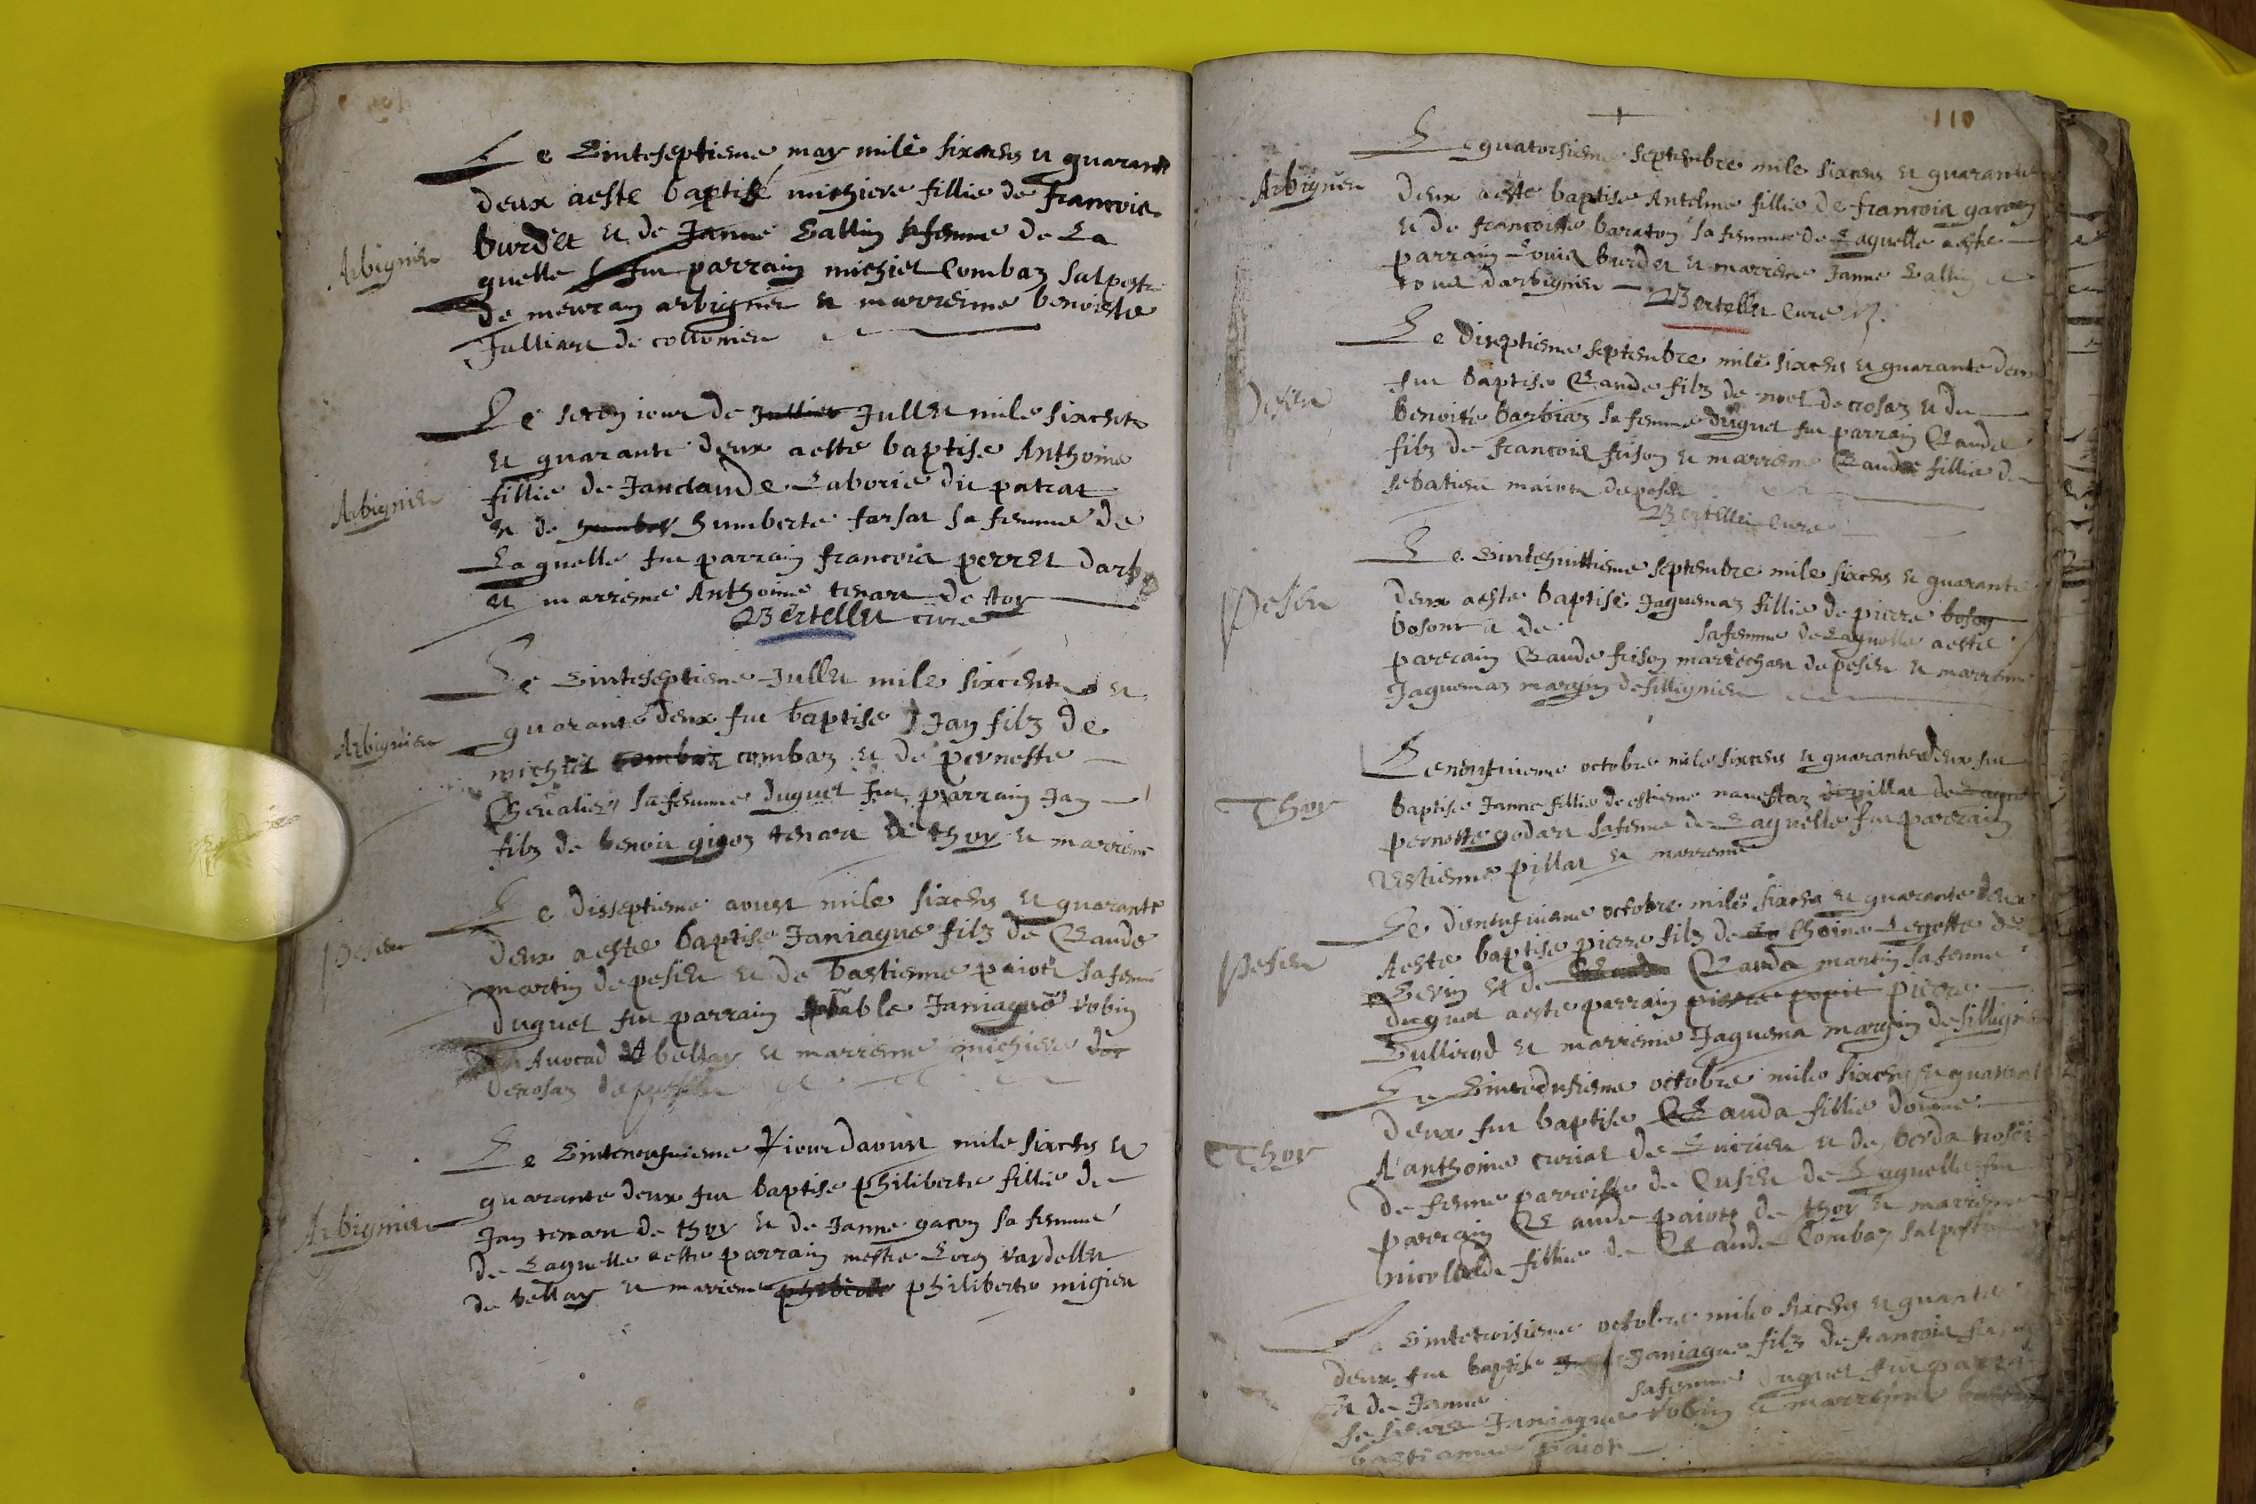 Le vinteseptieme may mile sixcens et quarante
deux a este baptisé michiere fillie de francois
burdet et de Janne Ballin sa femme de La
Arbignieu
quelle fut parrain michiel Combaz salpestr
de meiran arbignieu et marreine benoiste
Julliare de collomieu
Le secon iour de Jullet mile sixcents
et quarante deux a este baptise Anthoine
fillie de Janclaude Laborie du patrat
Arbignieu
et de humberte farsat sa femme de
Laquelle fut parrain francois perret darb
et marreme Anthoine tenare de toy
Bertellet cure
Le vinteseptieme Jullet mile sixcents et
quarante deux fut baptise Jan filz de
Arbignieu
michiel combaz et de pernette
Chevalier sa femme duquel fut parrain Jan
filz de benoit gigoz tenare de thoy et marreme
Le disseptieme aoust mile sixcens et quarante
deux a este baptise Janiaque filz de Claude
pesieu
martin de pesieu et de bastienne paiot sa femme
duquel fut parrain Janiaque robin
Avocad A bellay et marreme michiere
decrosaz de pesieu
Le vinteneufvieme iour daoust mile sixcens et
quarante deux fut baptise philiberte fillie de
Arbignieu
Jan tenare de thoy et de Janne gacon sa femme
de Laquelle a este parrain mestre Loys vardellet
de bellay et marreme philiberte migieu
110
Le quatorsieme septembre mile sixcens et quarante
Arbignieu
deux a este baptise Antelme fillie de francois gacon
et de francoise baraton sa femme de Laquelle a este
parrain Louis burdet et marreme Janne Ballin
tous darbignieu
Bertellet Cure
Le diseptieme septembre mile sixcens et quarante deux
fut baptise Claude filz de noel decrosaz et de
Pesieu
benoite barbiaz sa femme duquel fut parrain Claude
filz de francois frison et marreme Claude fillie de
sebatien mairot de pesieu
Bertellet Cure
Le vintehuittieme septembre mile sixcens et quarante
Pesieu
deux a este baptise Jaquemaz fillie de pierre boson
bosont et de sa femme de Laquelle a este
parrain Claude frison marechan de pesieu et marreme
Jaquemaz margin de sillignieu
Le neufvieme octobre mile sixcens et quarante deux fut
Thoy
baptise Janne fillie de estienne navettaz
pernette godare sa femme de Laquelle fut parrain
Estienne pillat et marreme
Le dixneufvieme octobre mile sixcens et quarante deux
Pesieu
A este baptise pierre filz de thoine Lerette de
Sevin et de Clauda martin sa femme
duquel a este parrain pierre
Gullierod et marreme Jaquema margin de sillignieu
Le vintedusieme octobre mile sixcens et quarante
deux fut baptise Clauda fillie donne
Thoy
A anthoine curiat de Luirieu et de
de femme parroisse de Cusieu de Laquelle fut
parrain Claude paiot de thoy et marreme
nicollarde fillie de Claude Combaz salpestr
Le vintetroisieme octobre mile sixcens et quarante
deux fut baptise Janiaque filz de francois
et de Janne sa femme duquel fut parrain
le sieure Janiaque robin et marreme
bastianne paiot